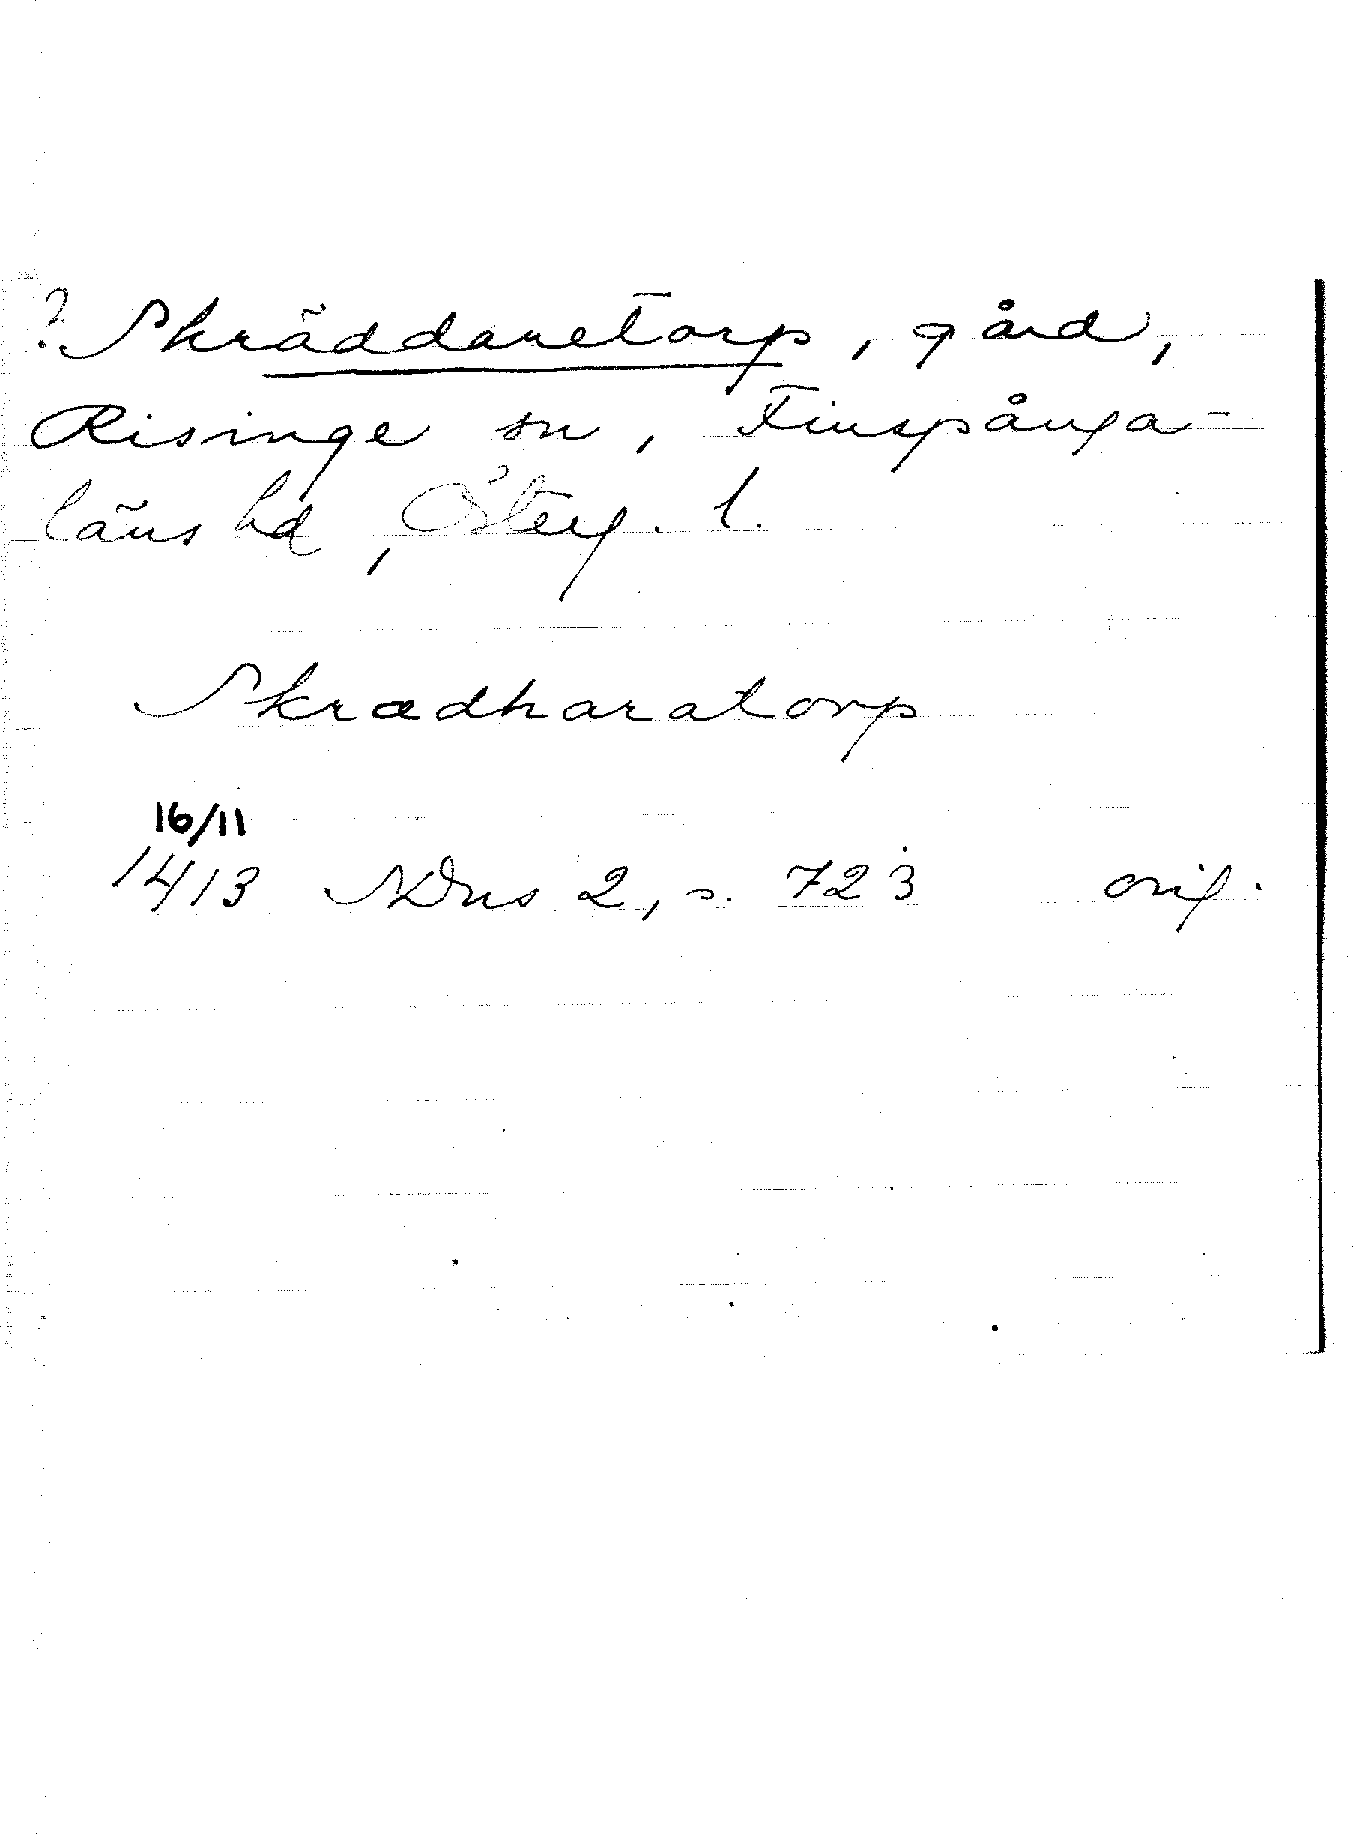 ? Skräddaretorp, gård,
Risinge sn, Finspånga-
läns hd, Österg. l.
Skrædharatorp
16/11
1413 NDns 2, s. 723 orig.